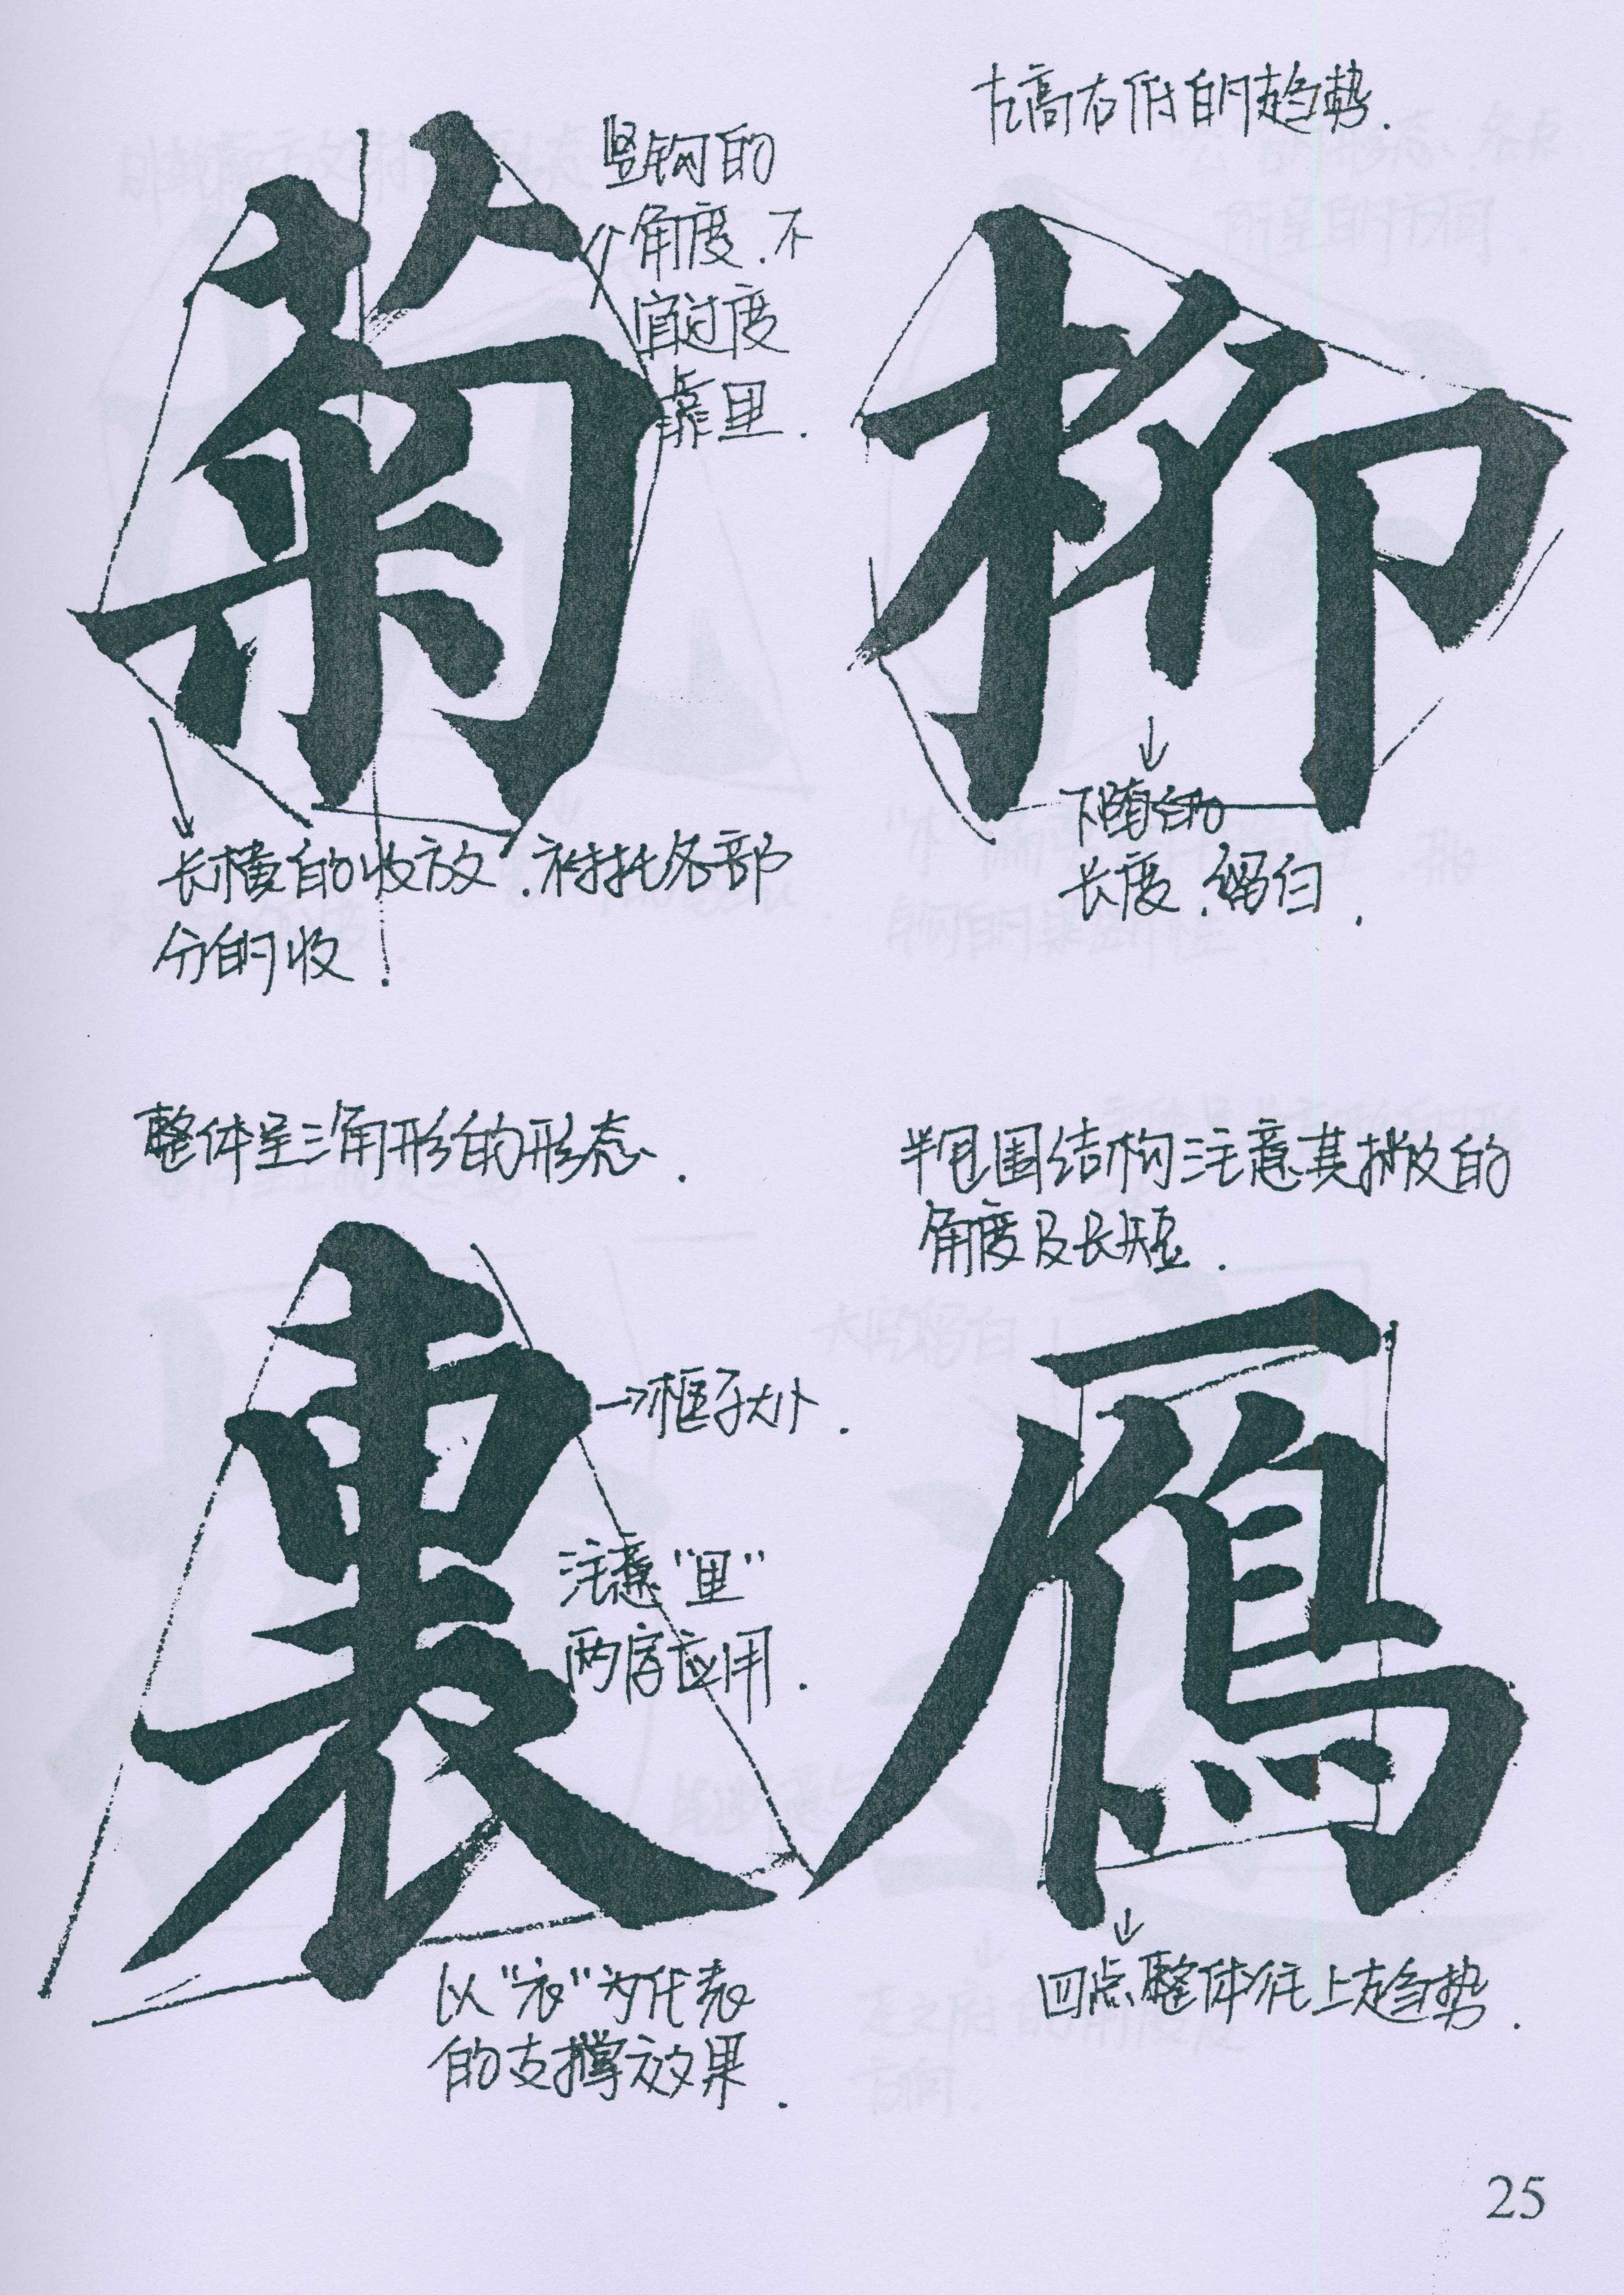 左高右低的趋势.
竖钩的
角度.不
宜过度
靠里.
菊
柳
下随的
长度.留白.
长横的收放.衬托各部
分的收.
整体呈三角形的形态.
半包围结构注意其撇的
角度及长短.
裏
→框子大小.
注意"里"
两房应用.
雁
以"衣"为代表
的支撑效果.
四点整体往上趋势.
25